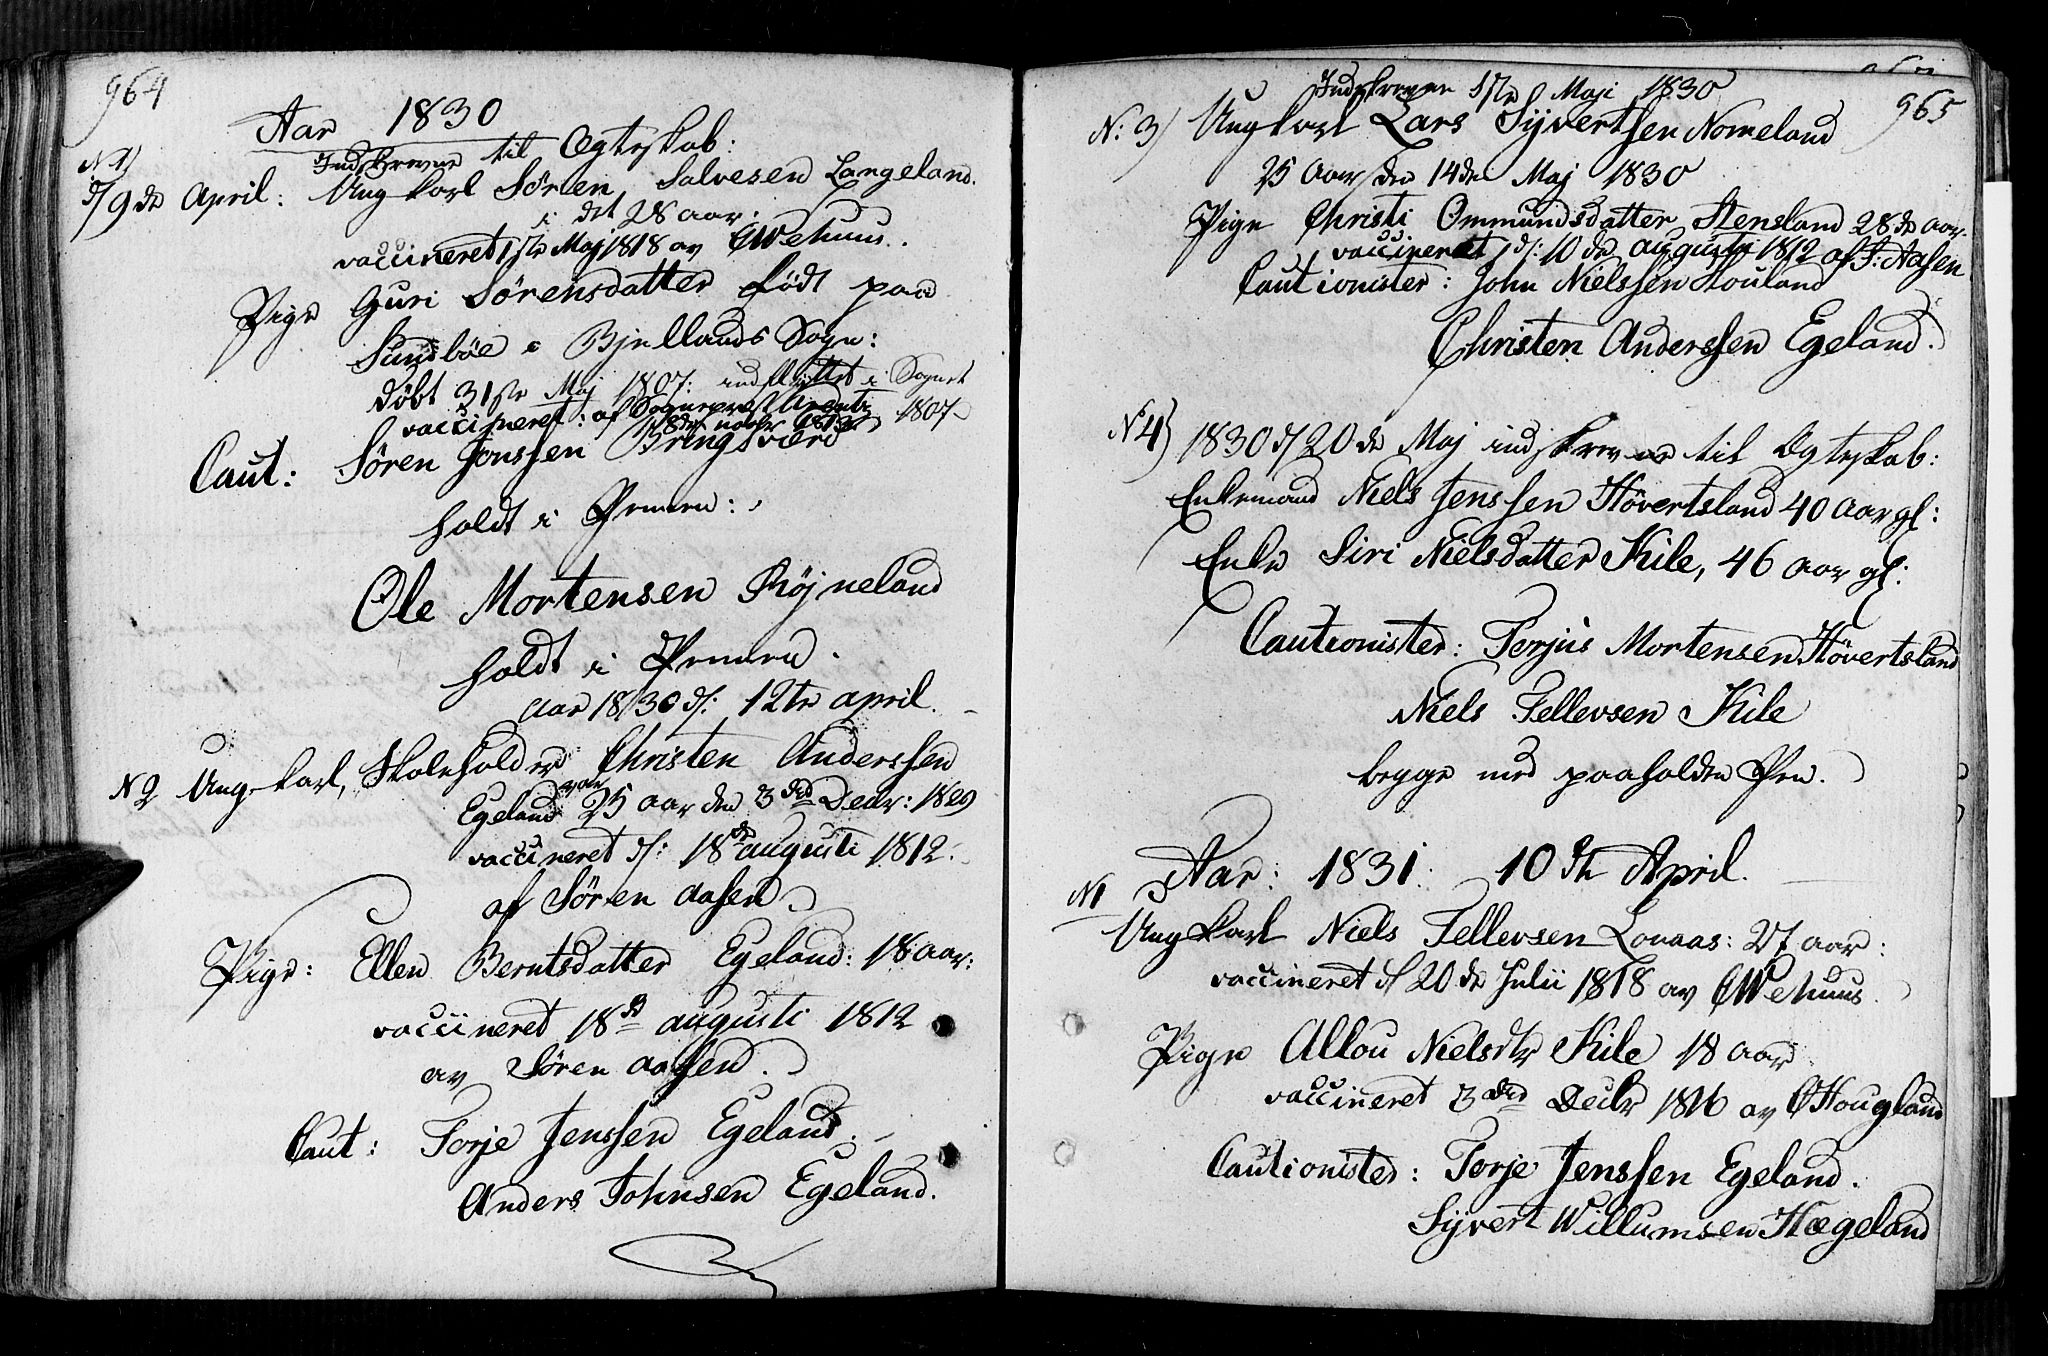 964
Aar 1830
Indskrevne til Ægteskab:
N 1)
d/9de April: Ungkarl Sören Salvesen Langeland.
i det 28 aar.
vaccineret 1ste Maj 1818 av CWehuus.
Pige Guri Sörensdatter födt paa
Sundböe i Bjellands Sogn:
döbt 31ste Maj 1807: indflÿttet i Sognet
vaccineret: af Sognepræst Arentz 1807
8de novbr
Caut: Sören Jonssen Bringsværd
holdt i Pennen:
Ole Mortensen Röjneland
holdt i Pennen.
Aar 1830 d: 12te april.
N 2 Ungkarl, Skoleholder Christen Anderssen
Egeland var 25 aar den 3die Decbr: 1829
vaccineret d: 18de augusti 1812.
af Sören Aasen
Pige: Ellen Berntsdatter Egeland: 18 aar:
vaccineret 18de augusti 1812
av Sören Aasen.
Caut: Torje Jenssen Egeland.
Anders Johnsen Egeland.
965
Indskreven 1ste Maji 1830
N: 3) Ungkarl Lars Sÿvertsen Nomeland
25 Aar den 14de Maj 1830
Pige Christi Ommundsdatter Stensland 28de aar.
vaccineret d: 10de augusti 1812 af S: Aasen
Cautionister: John Nielssen Houland
Christen Anderssen Egeland.
N 4) 1830 d/20de Maj indskrevne til Ægteskab:
Enkemand Niels Jenssen Hövertsland 40 Aar gl:
Enke Siri Nielsdatter Kile, 46 aar gl:
Cautionister: Torjus Mortensen Hövertsland
Niels Tellevsen Kile
begge med paaholden Pen.
Aar: 1831. 10de April.
N1
Ungkarl Niels Tellevsen Lonaas: 27 aar:
vaccineret d 20de Julii 1818 av CWehuus.
Pige Allou Nielsdtr Kile 18 aar
vaccineret 3die Decbr 1816 av OHougland
Cautionister: Torje Jenssen Egeland.
Sÿvert Willumsen Hægeland